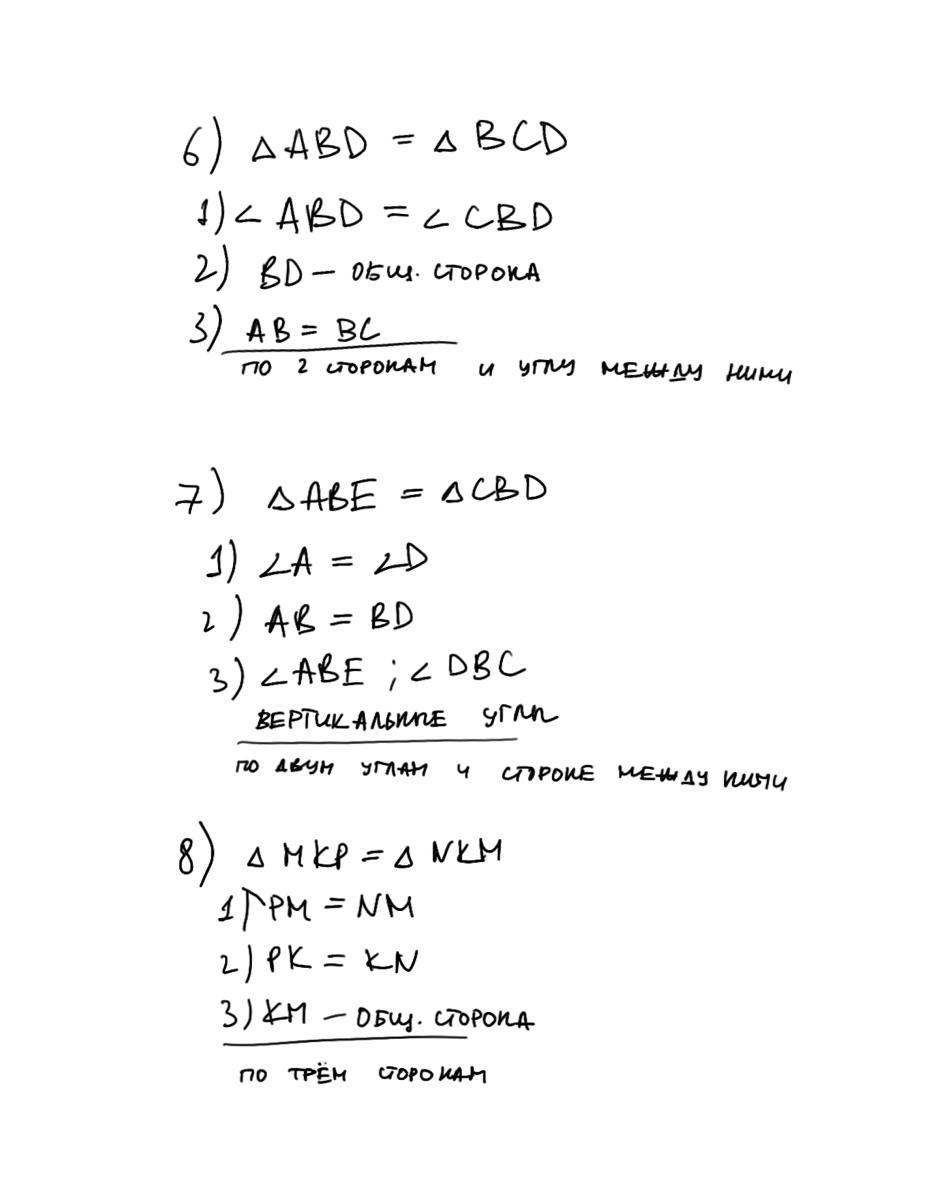 6) △ ABD = △ BCD
1) ∠ ABD = ∠ CBD
2) BD — ОБЩ. СТОРОНА
3) AB = BC
ПО 2 СТОРОНАМ И УГЛУ МЕЖДУ НИМИ
7) △ ABE = △ CBD
1) ∠A = ∠D
2) AB = BD
3) ∠ABE ; ∠ DBC
ВЕРТИКАЛЬНЫЕ УГЛЫ
ПО ДВУМ УГЛАМ И СТОРОНЕ МЕЖДУ НИМИ
8) △ MKP = △ NKM
1) PM = NM
2) PK = KN
3) KM — ОБЩ. СТОРОНА
ПО ТРЁМ СТОРОНАМ